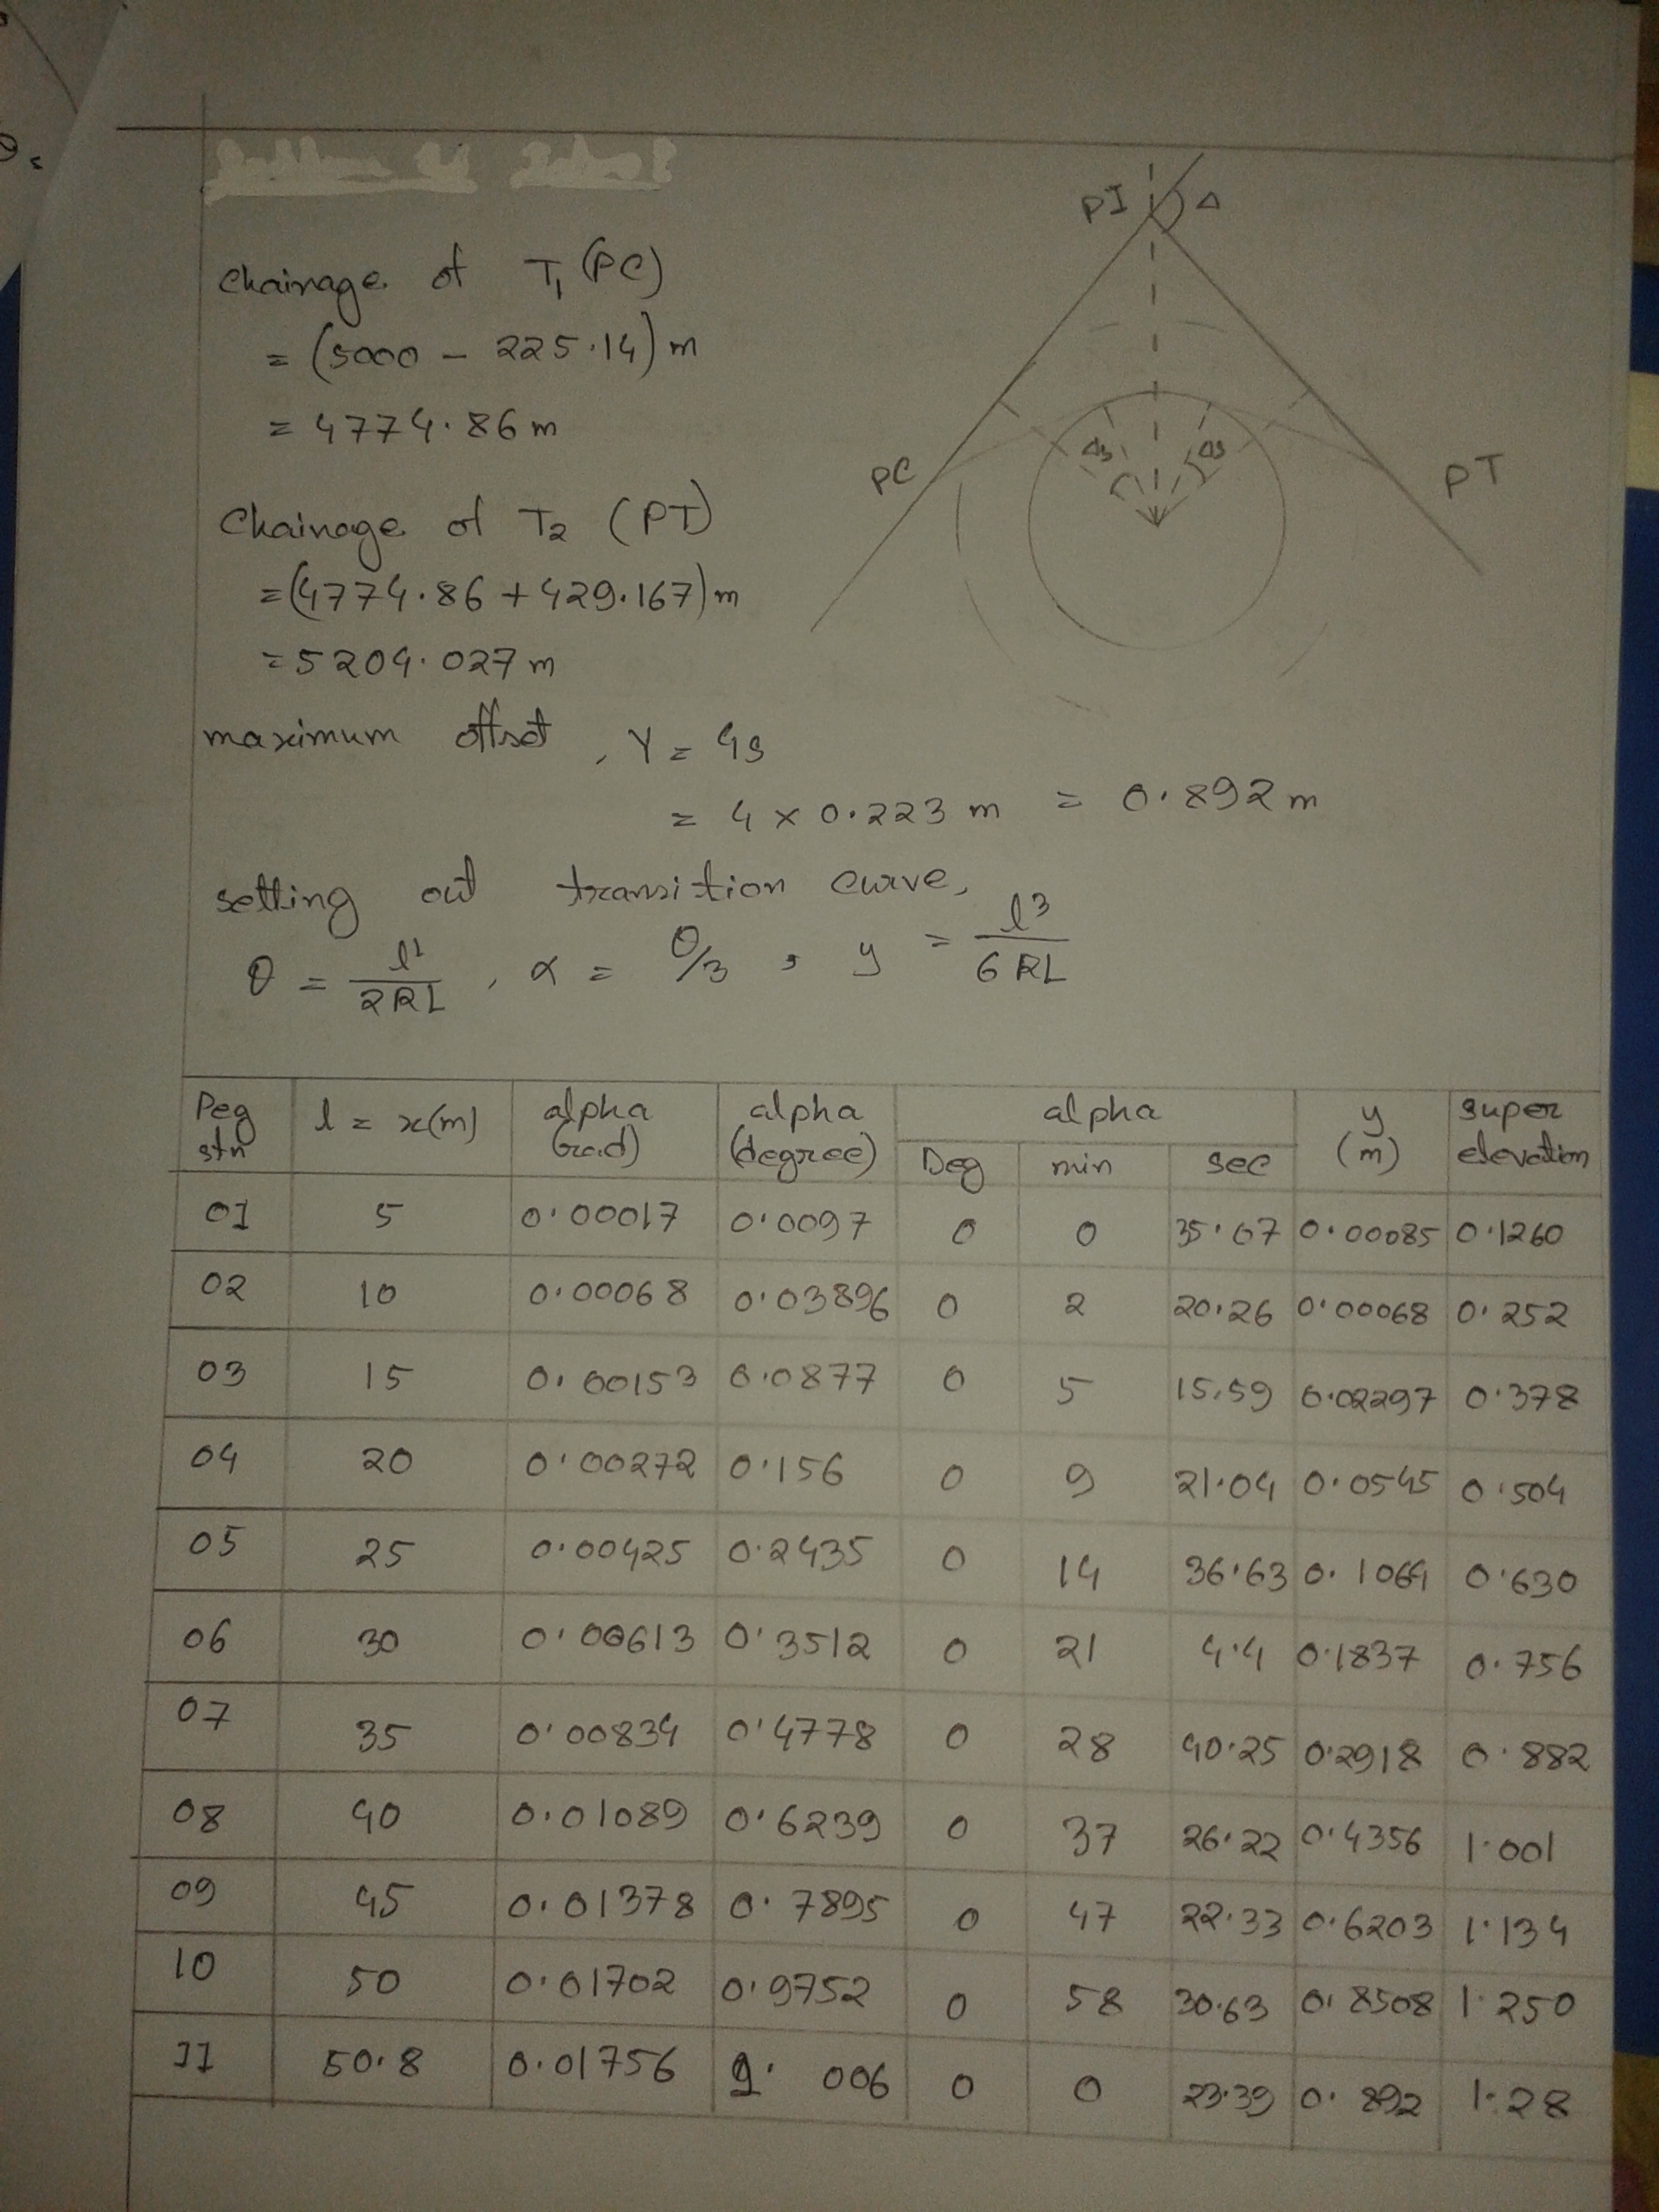 PI Δ
Chainage of T1 (PC)
= (5000 - 225.14) m
= 4774.86 m
PC
PT
Δs
Δs
Chainage of T2 (PT)
= (4774.86 + 429.167) m
= 5204.027 m
maximum offset, Y = 4s
= 4 × 0.223 m = 0.892 m
setting out transition curve,
θ = l²/2RL, α = θ/3, y = l³/6RL
Peg stn | l = x(m) | alpha (rad) | alpha (degree) | alpha Deg | min | sec | y (m) | super elevation
01 | 5 | 0.00017 | 0.0097 | 0 | 0 | 35.07 | 0.00085 | 0.1260
02 | 10 | 0.00068 | 0.03896 | 0 | 2 | 20.26 | 0.00068 | 0.252
03 | 15 | 0.00153 | 0.0877 | 0 | 5 | 15.59 | 0.02297 | 0.378
04 | 20 | 0.00272 | 0.156 | 0 | 9 | 21.04 | 0.0545 | 0.504
05 | 25 | 0.00425 | 0.2435 | 0 | 14 | 36.63 | 0.1064 | 0.630
06 | 30 | 0.00613 | 0.3512 | 0 | 21 | 4.4 | 0.1837 | 0.756
07 | 35 | 0.00834 | 0.4778 | 0 | 28 | 40.25 | 0.2918 | 0.882
08 | 40 | 0.01089 | 0.6239 | 0 | 37 | 26.22 | 0.4356 | 1.001
09 | 45 | 0.01378 | 0.7895 | 0 | 47 | 22.33 | 0.6203 | 1.134
10 | 50 | 0.01702 | 0.9752 | 0 | 58 | 30.63 | 0.8508 | 1.250
11 | 50.8 | 0.01756 | 1.006 | 0 | 0 | 23.39 | 0.892 | 1.28